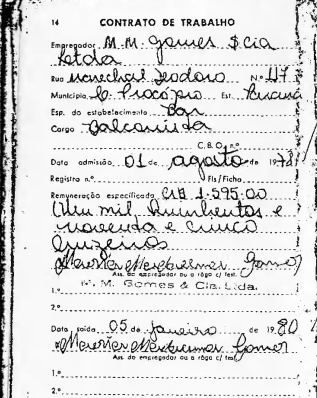 14 CONTRATO DE TRABALHO
Empregador M.M. Gomes & Cia
Ltda
Rua Marechal Deodoro N.º 117
Município C. Procópio Est. Paraná
Esp. do estabelecimento Bar
Cargo Balconista
C.B.O. n.º
Data admissão 01 de agosto de 1978
Registro n.º Fls/Ficha
Remuneração especificada CR$ 1.595,00
(Um mil, quinhentos e
noventa e cinco
cruzeiros
Gomes
Ass. do empregador ou a rôgo c/ test.
M. M. Gomes & Cia. Ltda.
1.º
2.º
Data saída 05 de janeiro de 1980
Gomes
Ass. do empregador ou a rôgo c/ test.
1.º
2.º